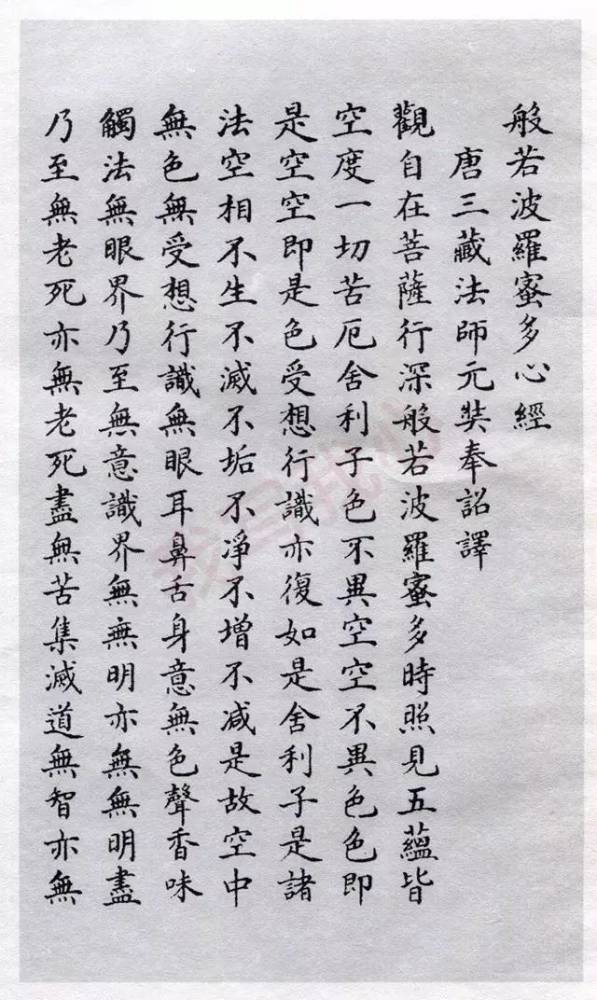 般若波羅蜜多心經
唐三藏法師元奘奉詔譯
觀自在菩薩行深般若波羅蜜多時照見五蘊皆
空度一切苦厄舍利子色不異空空不異色色即
是空空即是色受想行識亦復如是舍利子是諸
法空相不生不滅不垢不淨不增不減是故空中
無色無受想行識無眼耳鼻舌身意無色聲香味
觸法無眼界乃至無意識界無無明亦無無明盡
乃至無老死亦無老死盡無苦集滅道無智亦無